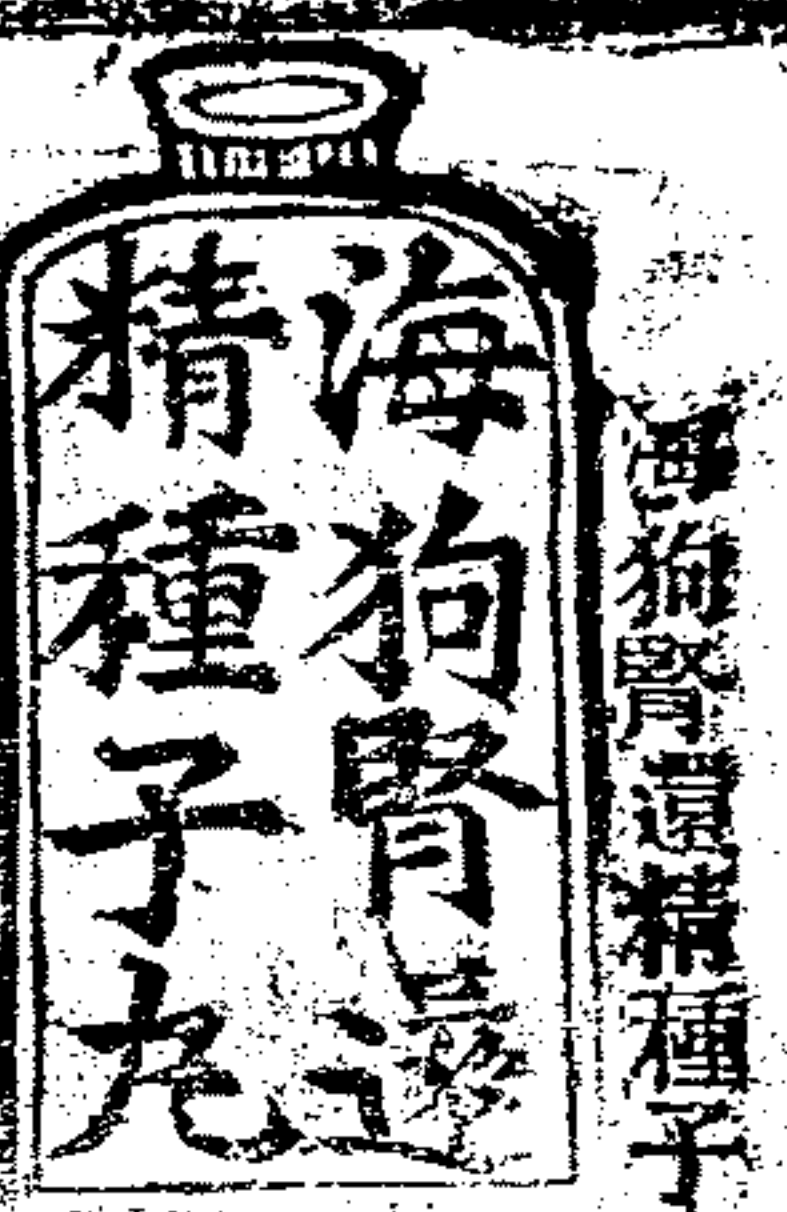 海狗腎還精種子
海狗腎還
精種子丸